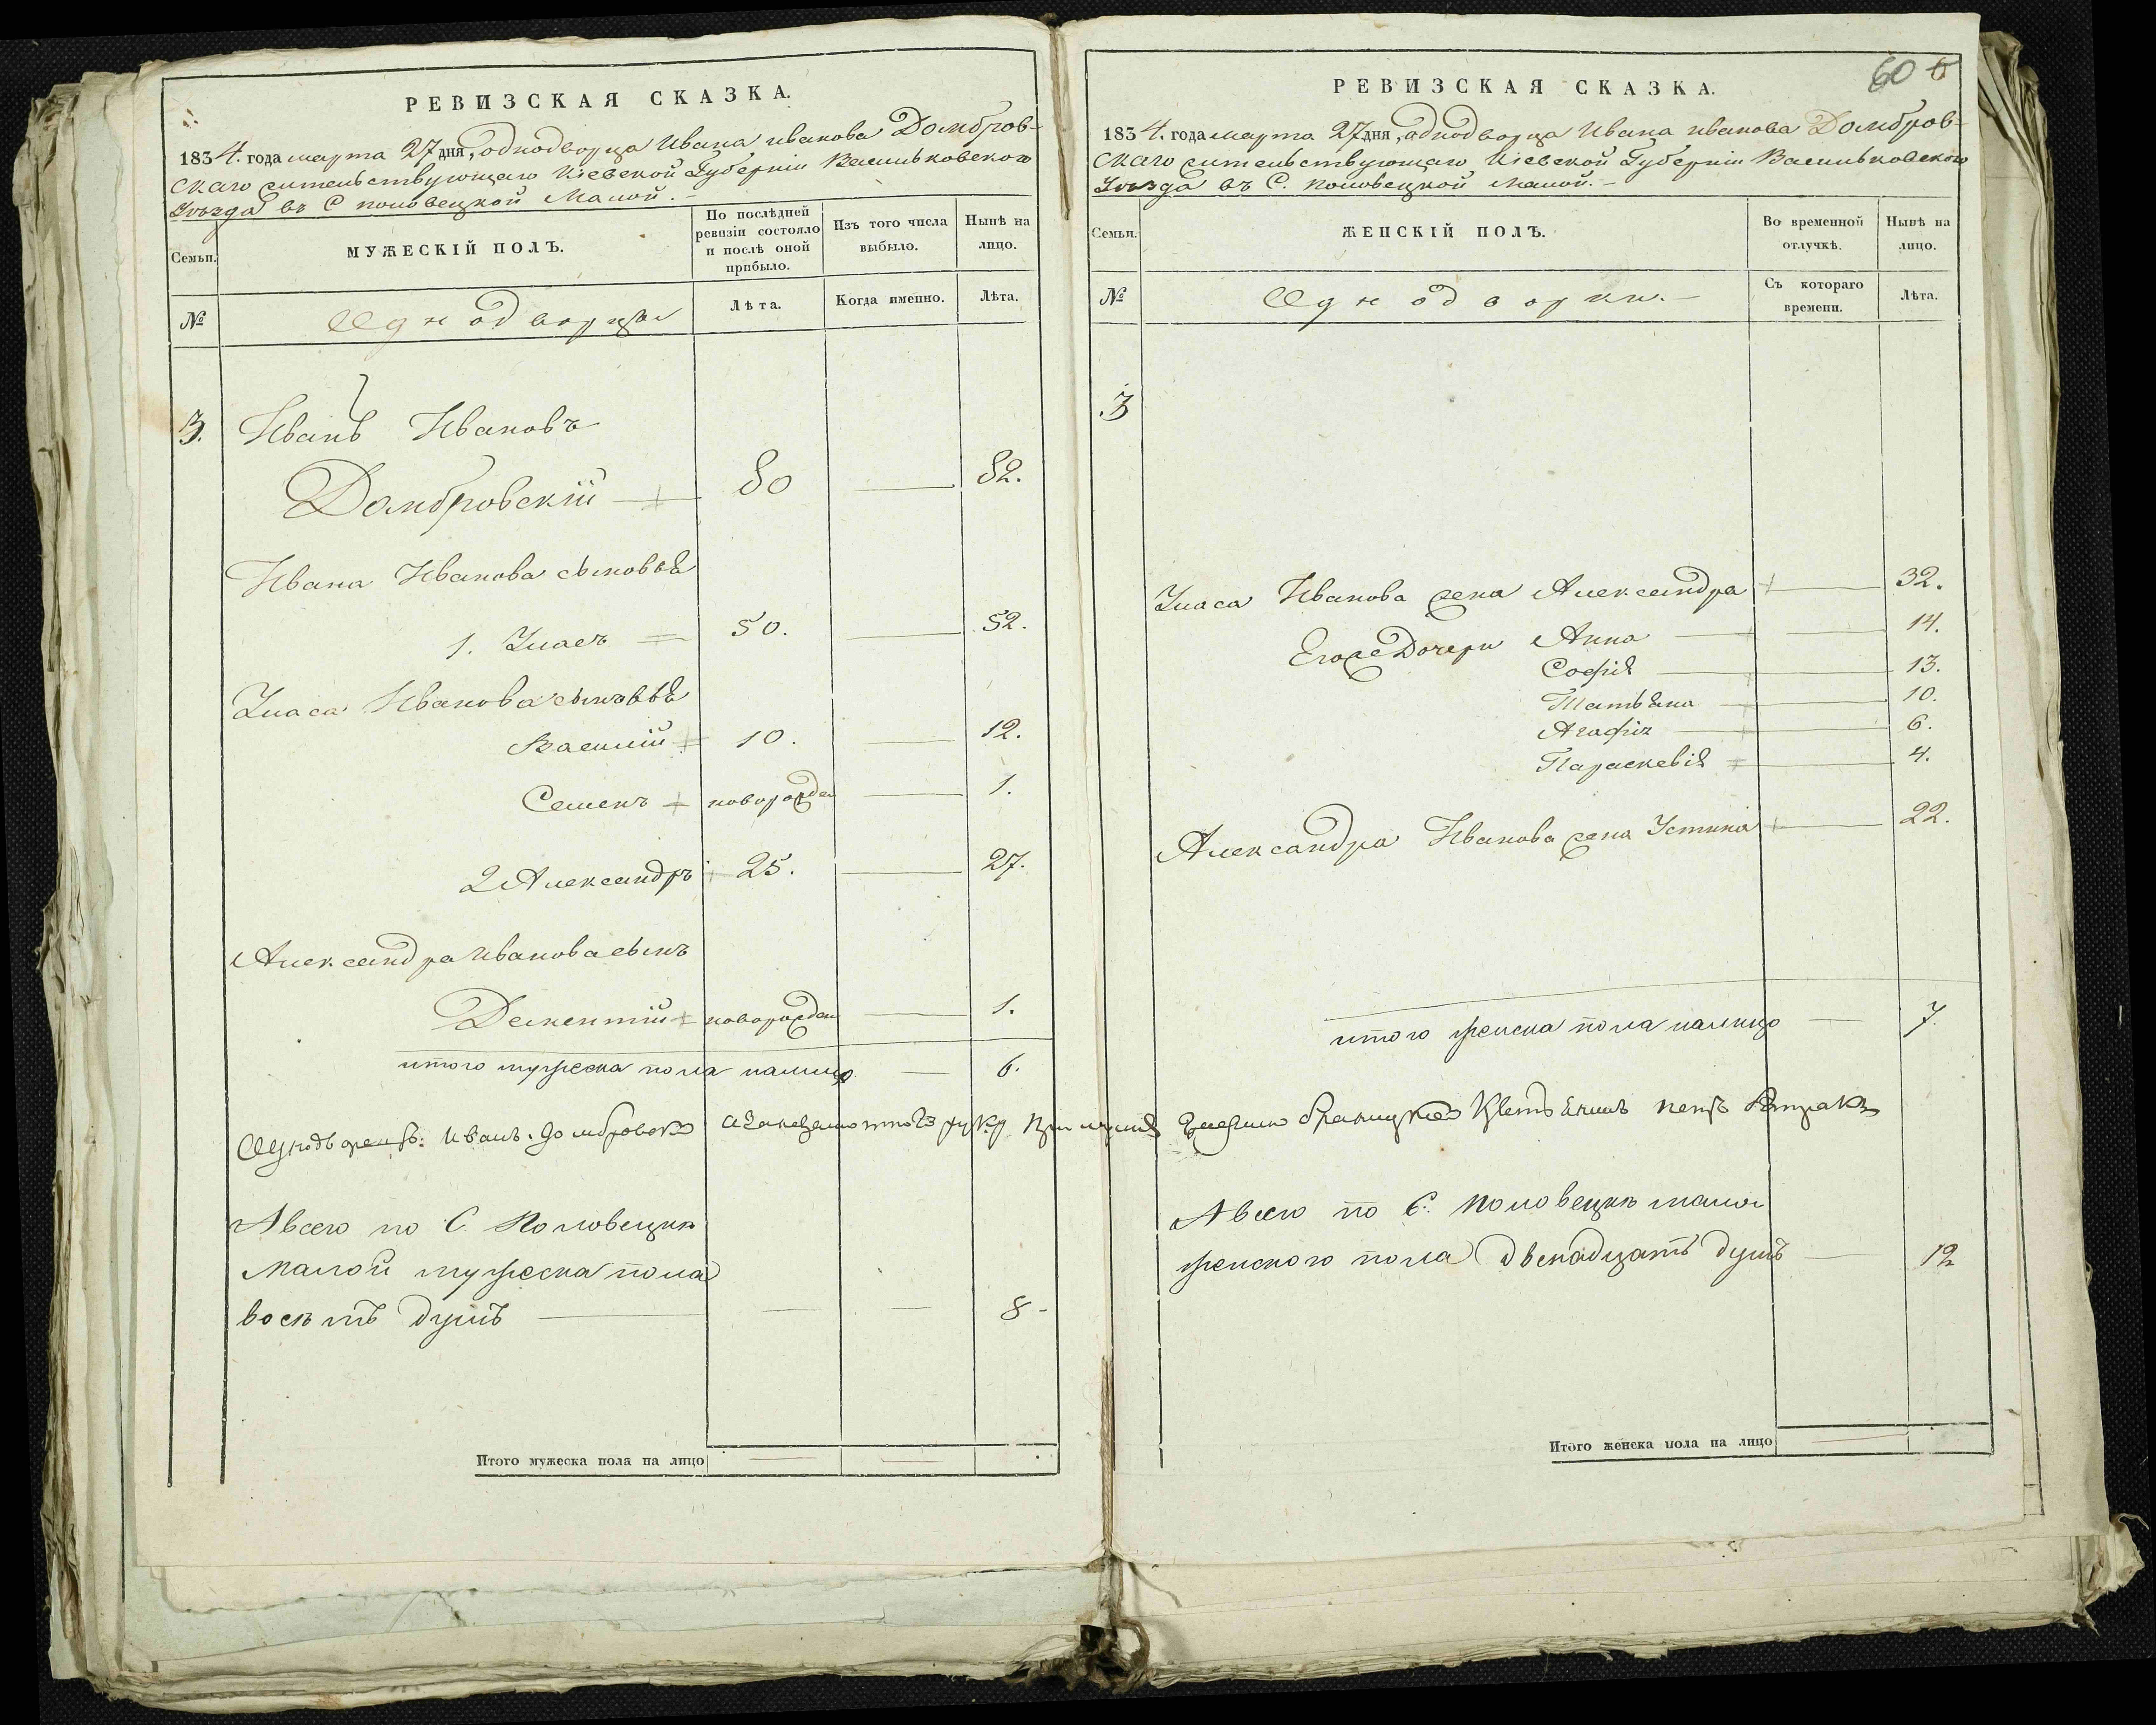 РЕВИЗСКАЯ СКАЗКА.
1834. года марта 27 дня, однодворца Ивана иванова Домбров-
скаго жительствующаго Кіевской Губерніи Васильковского
Уѣзда въ С половецкой Малой.-
Семьи.
МУЖЕСКІЙ ПОЛЪ.
По послѣдней ревизіи состояло и послѣ оной прибыло.
Изъ того числа выбыло.
Нынѣ на лицо.
№
Однодворцы
Лѣта.
Когда именно.
Лѣта.
3. Иванъ Ивановъ
Домбровскій 80 — 82.
Ивана Иванова сыновья
1. Уласъ 50. — 52.
Уласа Иванова сыновья
Василій 10. — 12.
Семенъ новорожден — 1.
2 Александръ 25. — 27.
Александра Иванова сынъ
новорожден — 1.
итого мужеска пола налицо — 6.
Однодворецъ Иванъ Домбровскі
А всего по С. Половецкѣ
Малой мужеска пола
восемъ душъ — — — 8-
Итого мужеска пола на лицо
60 6
РЕВИЗСКАЯ СКАЗКА.
1834. года марта 27 дня, однодворца Ивана иванова Домбров-
скаго жительствующаго Кіевской Губерніи Васильковского
Уѣзда въ С. половецкой малой.-
Семьи.
ЖЕНСКІЙ ПОЛЪ.
Во временной отлучкѣ.
Нынѣ на лицо.
№
Однодворки.-
Съ котораго времени.
Лѣта.
3
Уласа Иванова жена Александра — 32.
Егоже Дочери Анна — 14.
Софія — 13.
Татьяна — 10.
Агафія — 6.
Параскевія — 4.
Александра Иванова жена Устина — 22.
итого женска пола налицо — 7.
А всего по С. Половецкѣ малой
женского пола двенадцать душъ — 12
Итого женска пола на лицо